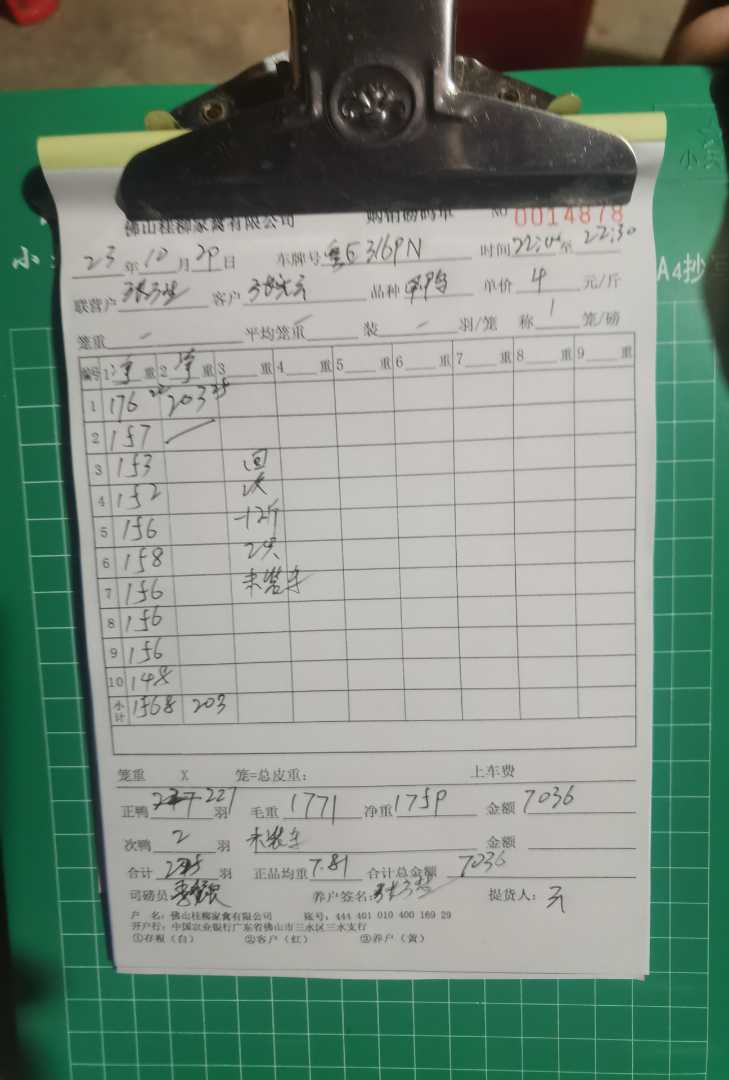 佛山桂柳家禽有限公司 购销磅码单 NO 0014878
23年10月29日 车牌号粤E316PN 时间22:04至22:30
联营户 客户 品种 单价4元/斤
笼重- 平均笼重- 装-羽/笼 称1笼/磅
编号 1净重 2净重 3重 4重 5重 6重 7重 8重 9重
1 176 203
2 157
3 153 回
4 152
5 156 -12斤
6 158 2只
7 156 未装车
8 156
9 156
10 148
小计 1568 203
笼重 X 笼=总皮重: 上车费
正鸭227羽 毛重1771 净重1759 金额7036
次鸭2羽 未装车 金额
合计225羽 正品均重7.81 合计总金额7036
司磅员 养户签名: 提货人:
户 名:佛山桂柳家禽有限公司 账号:444 401 010 400 169 29
开户行:中国农业银行广东省佛山市三水区三水支行
①存根(白) ②客户(红) ③养户(黄)
小
A4抄写
小